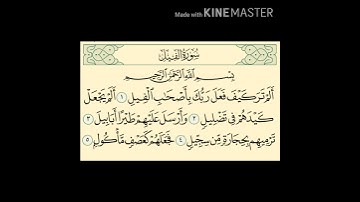 Made with KINEMASTER
سُورَةُ الْفِيلِ
بِسْمِ اللَّهِ الرَّحْمَٰنِ الرَّحِيمِ
أَلَمْ تَرَ كَيْفَ فَعَلَ رَبُّكَ بِأَصْحَابِ الْفِيلِ ١ أَلَمْ يَجْعَلْ
كَيْدَهُمْ فِي تَضْلِيلٍ ٢ وَأَرْسَلَ عَلَيْهِمْ طَيْرًا أَبَابِيلَ ٣
تَرْمِيهِم بِحِجَارَةٍ مِّن سِجِّيلٍ ٤ فَجَعَلَهُمْ كَعَصْفٍ مَّأْكُولٍ ٥